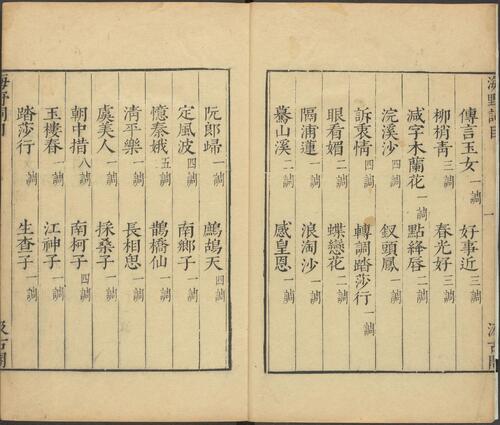 海野詞目
傳言玉女一調 好事近三調
柳梢青三調 春光好三調
減字木蘭花一調 點絳唇二調
浣溪沙四調 釵頭鳳一調
訴衷情四調 轉調踏莎行一調
眼看媚二調 蝶戀花二調
隔浦蓮一調 浪淘沙一調
驀山溪二調 感皇恩一調
阮郎歸一調 鷓鴣天四調
定風波四調 南鄉子一調
憶秦娥五調 鵲橋仙一調
清平樂一調 長相思一調
虞美人一調 採桑子一調
朝中措八調 南柯子四調
玉樓春一調 江神子一調
踏莎行一調 生查子一調
海野詞目
汲古閣